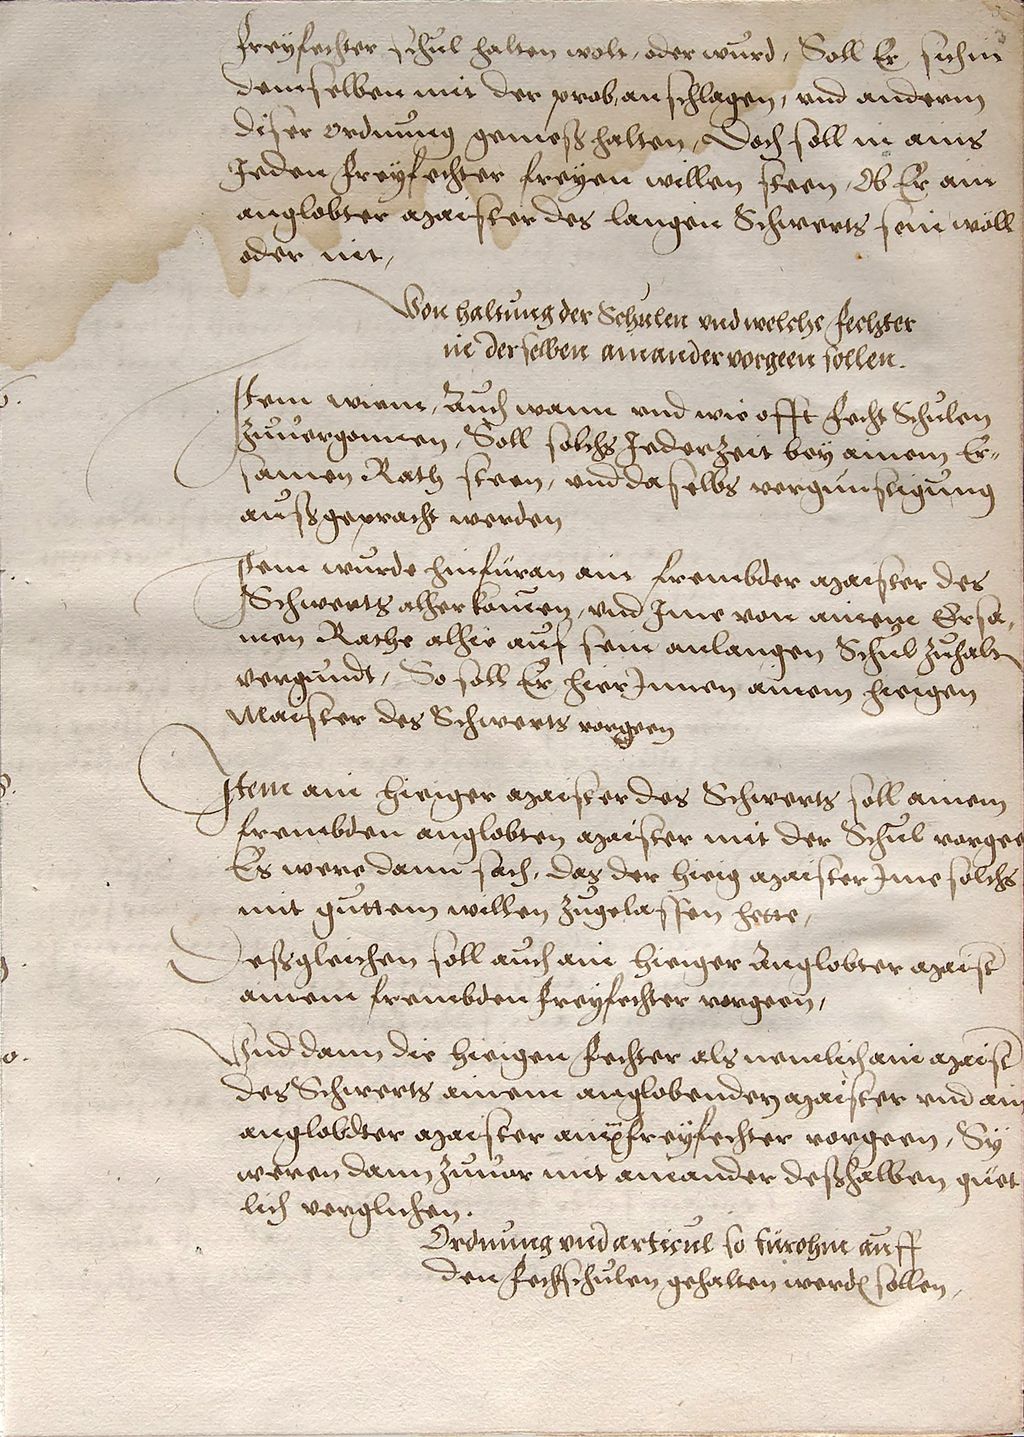 freyfechter schul halten wolt, oder wurd, Soll Er, sich in
demselben mit der prob, anschlagen, vnd anderm
diser ordnung gemeß halten, Doch soll in ains
Jeden freyfechter freyen willen steen, Ob Er ain
anglobter maister des langen Schwerts sein wöll
oder nit,
Von haltung der Schulen vnd welche fechter
in derselben ainander vorgeen sollen.
6.
Item wiem, Auch wann vnd wie offt fecht Schulen
zuuergonnen, Soll solchs Jederzeit bey ainem Er-
samen Rath steen, vnd daselbs vergunstigung
außgepracht werden
Item wurde hinfüran ain frembder maister des
Schwerts alher komen, vnd Ime von ainem Ersa,
men Rathe alhie auf sein anlangen Schul zuhalt
vergundt, So soll Er hier Innen ainem hieigen
Maister des Schwerts vorgeen
8.
Item ain hieiger maister des Schwerts soll ainem
frembden anglobten maister mit der Schul vorgee
Es were dann sach, das der hieig maister Ime solchs
mit guttem willen zugelassen hette,
9.
Deßgleichen soll auch ain hieiger Anglobter maist
ainem frembden freyfechter vorgeen,
o.
Vnd dann die hieigen fechter als nemlich ain maist
des Schwerts ainem anglobenden maister vnd ain
anglobdter maister aim freyfechter vorgeen, Sy
weren dann zuuor mit ainander deßhalben guet
lich verglichen.
Ordnung vnd articul so fürohin auff
den fechtschulen gehalten werden sollen,